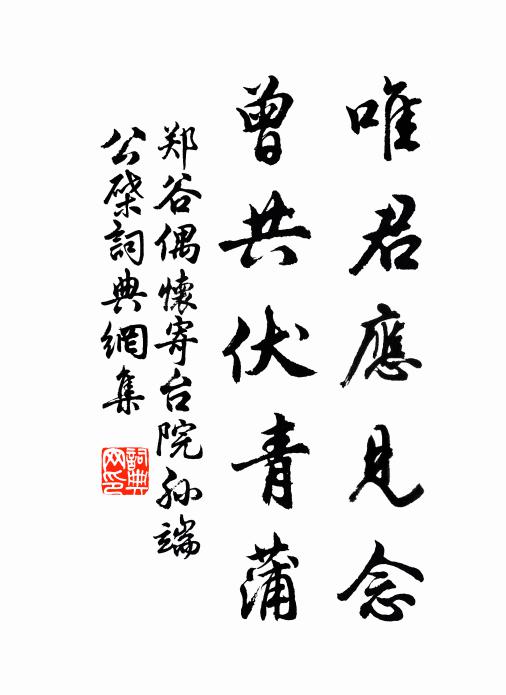 唯君應見念
曾共伏青蒲
郑谷偶懷寄台院孙端
公檠詞典網集
詞典网印